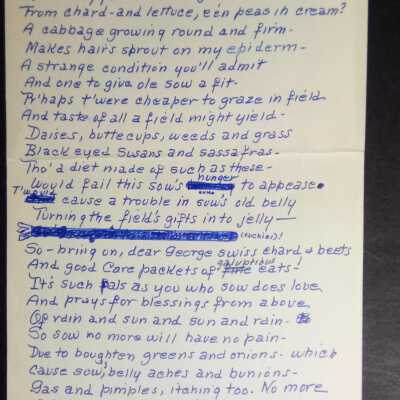 From chard - and lettuce, e'en peas in cream?
A cabbage growing round and firm -
Makes hairs sprout on my epiderm -
A strange condition you'll admit
And one to give ole sow a fit.
P'rhaps t'were cheaper to graze in field
And taste of all a field might yield -
Daises, buttecups, weeds and grass
Black eyed Susans and sassafras -
Tho' a diet made of such as these -
Would fail this sow's hunger to appease.
T'would cause a trouble in sow's old belly
Turning the field's gifts into jelly -
So - bring on, dear George swiss chard & beets
And good Care packets of galuptious eats!
It's such pals as you who sow does love
And prays for blessings from above
Of rain and sun and sun and rain -
So sow no more will have no pain -
Due to boughten greens and onions - which
Cause sow, belly aches and bunions -
Gas and pimples, itching too. No more